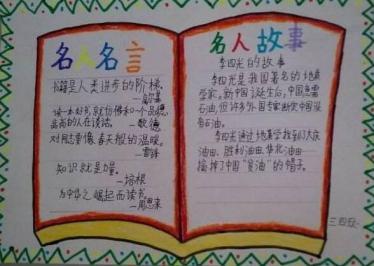 名人名言
书籍是人类进步的阶梯。
—高尔基
读一本好书,就仿佛和一个品德
高尚的人在谈话。—歌德
对同志要像春天般的温暖。
—雷锋
知识就是力量。
—培根
为中华之崛起而读书。
—周恩来
名人故事
李四光的故事
李四光是我国著名的地质
学家,新中国诞生后,中国急需
石油,但许多外国专家断定中国没
有石油。
李四光通过地质学找到了大庆
油田、胜利油田、华北油田
摘掉了中国“贫油”的帽子。